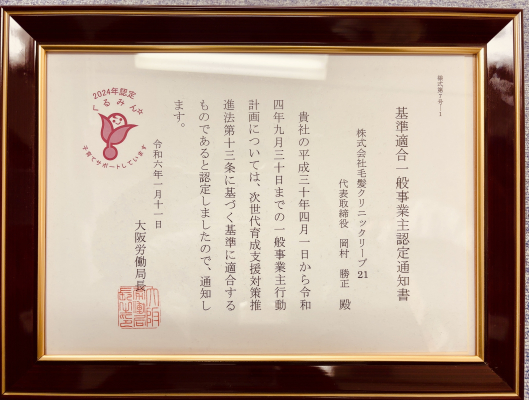 様式第7号-1
基準適合一般事業主認定通知書
株式会社毛髪クリニックリーブ21
代表取締役 岡村 勝正 殿
貴社の平成三十年四月一日から令和
四年九月三十日までの一般事業主行動
計画については、次世代育成支援対策推
進法第十三条に基づく基準に適合する
ものであると認定しましたので、通知し
ます。
令和六年一月十一日
大阪労働局長
2024年認定
くるみん
子育てサポートしています